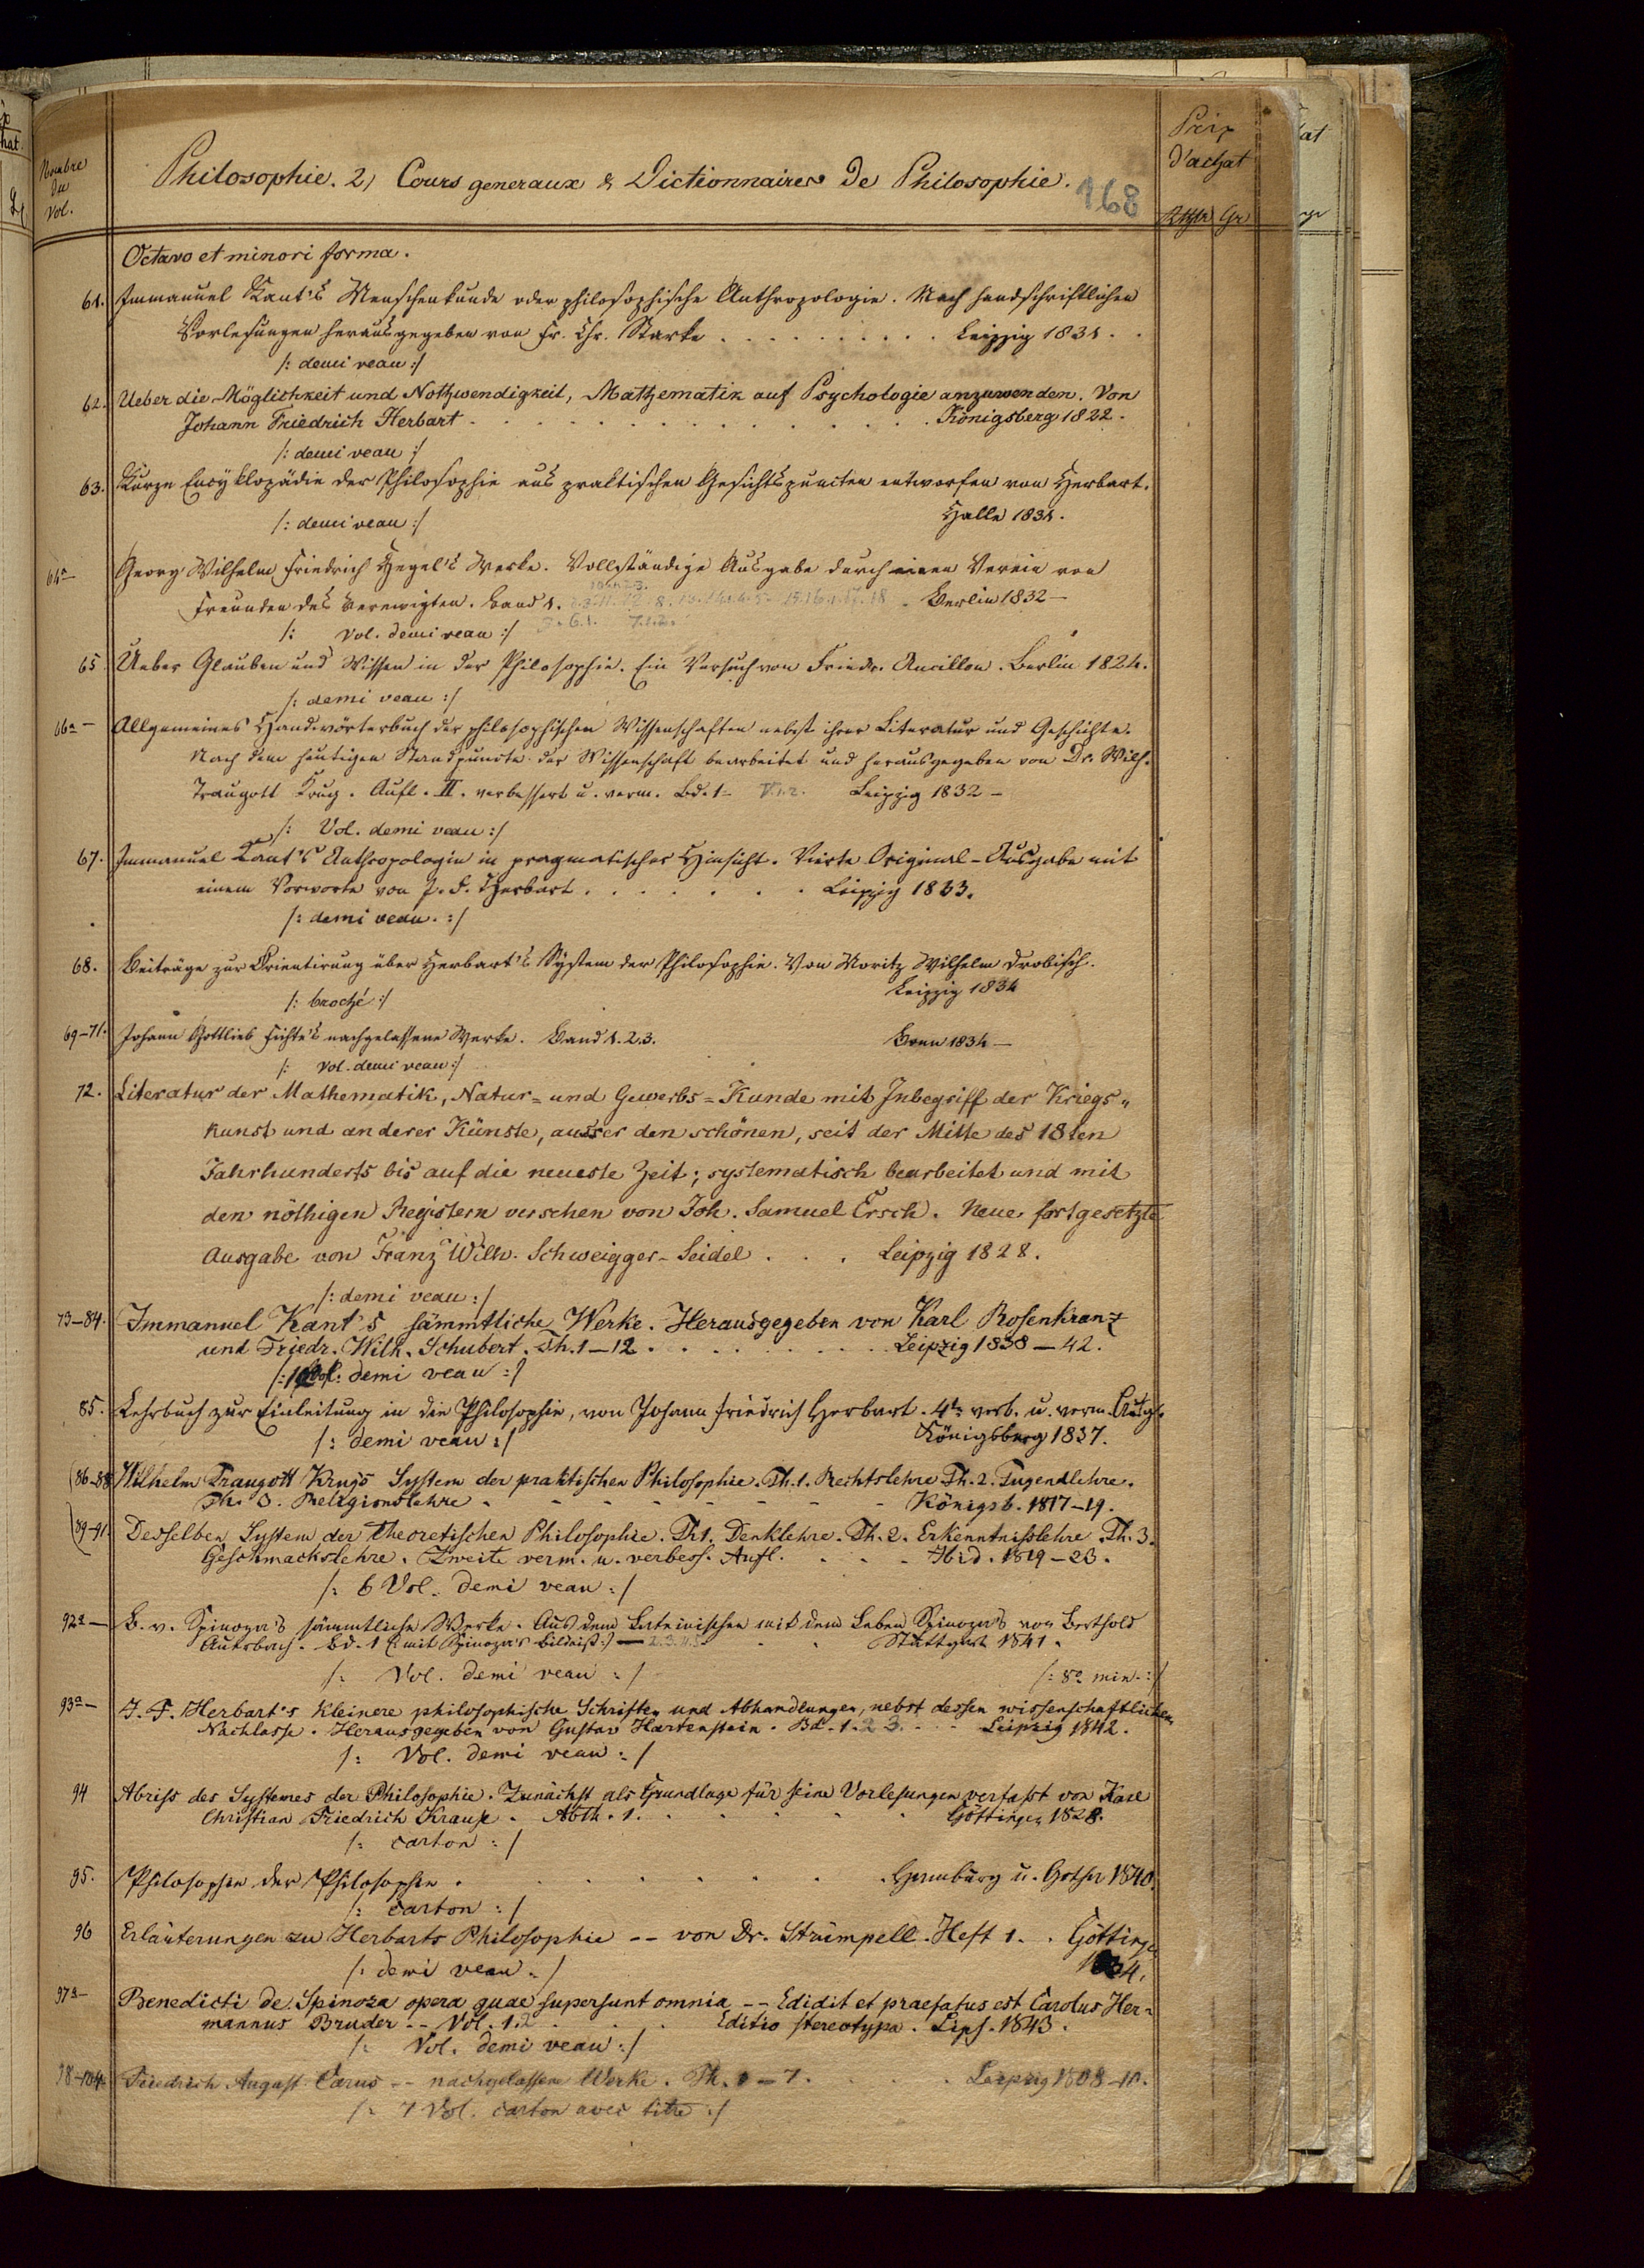 Nombre du Vol.
Philosophie. 2, Cours generaux & Dictionnaires De Philosophie.
168
Prix d'achat
Rthlr Gr
Octavo et minori forma.
61. Immanuel Kant's Menschenkunde oder philosophische Anthropologie. Nach handschriftlichen
Vorlesungen herausgegeben von Fr. Chr. Starke . . . . . . . . . . Leipzig 1831. .
/: demi veau :/
62. Ueber die Möglichkeit und Nothwendigkeit, Mathematik auf Psychologie anzuwenden. Von
Johann Friedrich Herbart . . . . . . . . . . . . Königsberg 1822.
/: demi veau :/
63. Kurze Encyklopädie der Philosophie aus praktischen Gesichtspuncten entworfen von Herbart.
/: demi veau :/ Halle 1831.
64a— Georg Wilhelm Friedrich Hegel's Werke. Vollständige Ausgabe durch einen Verein von
Freunden des Verewigten. Band 1. Berlin 1832—
/: Vol. demi veau :/ 6.1. 7.1.2.
65. Ueber Glauben und Wissen in der Philosophie. Ein Versuch von Friedr. Ancillon. Berlin 1824.
/: demi veau :/
66a— Allgemeines Handwörterbuch der philosophischen Wissenschaften nebst ihrer Literatur und Geschichte.
Nach dem heutigen Standpuncte der Wissenschaft bearbeitet und herausgegeben von Dr. Wilh.
Traugott Krug. Aufl. II. verbessert u. verm. Bd. 1— V.1.2. Leipzig 1832—
/: Vol. demi veau :/
67. Immanuel Kant's Anthropologie in pragmatischer Hinsicht. Vierte Original-Ausgabe mit
einem Vorworte von J. F. Herbart . . . . . . . Leipzig 1833.
/: demi veau. :/
68. Beiträge zur Orientirung über Herbart's System der Philosophie. Von Moritz Wilhelm Drobisch.
/: broché :/ Leipzig 1834
69–71. Johann Gottlieb Fichte's nachgelassene Werke. Band 1. 2. 3. Bonn 1834—
/: Vol. demi veau :/
72. Literatur der Mathematik, Natur= und Gewerbs=Kunde mit Inbegriff der Kriegs=
kunst und anderer Künste, ausser den schönen, seit der Mitte des 18ten
Jahrhunderts bis auf die neueste Zeit; systematisch bearbeitet und mit
den nöthigen Registern versehen von Joh. Samuel Ersch. Neue fortgesetzte
Ausgabe von Franz Wilh. Schweigger-Seidel . . . Leipzig 1828.
/: demi veau :/
73–84. Immanuel Kant's sämmtliche Werke. Herausgegeben von Karl Rosenkranz
und Friedr. Wilh. Schubert. Th. 1–12 . . . . . . . . Leipzig 1838–42.
/: Vol: demi veau :/
85. Lehrbuch zur Einleitung in die Philosophie, von Johann Friedrich Herbart. 4te verb. u. verm. Ausg.
/: demi veau :/ Königsberg 1837.
(86–88 Wilhelm Traugott Krug's System der praktischen Philosophie. Th. 1. Rechtslehre Th. 2. Tugendlehre.
Th. 3. Religionslehre - - - - - - - - Königsb. 1817–19.
(89–91. Desselben System der theoretischen Philosophie. Th 1. Denklehre. Th. 2. Erkenntnisslehre. Th. 3.
Geschmackslehre. Zweite verm. u. verbess. Aufl. . . . . Ibid. 1819–23.
/: 6 Vol. demi veau :/
92a— B. v. Spinoza's sämmtliche Werke. Aus dem Lateinischen mit dem Leben Spinoza's von Berthold
Auerbach. Bd. 1 (: mit Spinoza's Bildniß :) — 2.3.4.5. . . Stuttgart 1841.
/: Vol. demi veau :/ /: 8o min. :/
93a— J. F. Herbart's kleinere philosophische Schriften und Abhandlungen, nebst dessen wissenschaftlichem
Nachlasse. Herausgegeben von Gustav Hartenstein. Bd. 1. 2 3. . . . Leipzig 1842.
/: Vol. demi veau :/
94 Abriss des Systemes der Philosophie. Zunächst als Grundlage für seine Vorlesungen verfasst von Karl
Christian Friedrich Krause. Abth. 1. . . . . . . . Göttingen 1828.
/: carton :/
95. Philosophie der Philosophie . . . . . . . . Hamburg u. Gotha 1840.
/: carton :/
96 Erläuterungen zu Herbarts Philosophie -- von Dr. Strümpell. Heft 1. . Göttingen
/: demi veau :/ 1834.
97a— Benedicti de Spinoza opera quae supersunt omnia -- Edidit et praefatus est Carolus Her=
mannus Bruder -- Vol. 1. . . . Editio stereotypa. Lips. 1843.
/: Vol. demi veau :/
98–104. Friedrich August Carus -- nachgelassene Werke. Th. 1–7. . . . . Leipzig 1808–10.
/: 7 Vol. carton avec titre :/